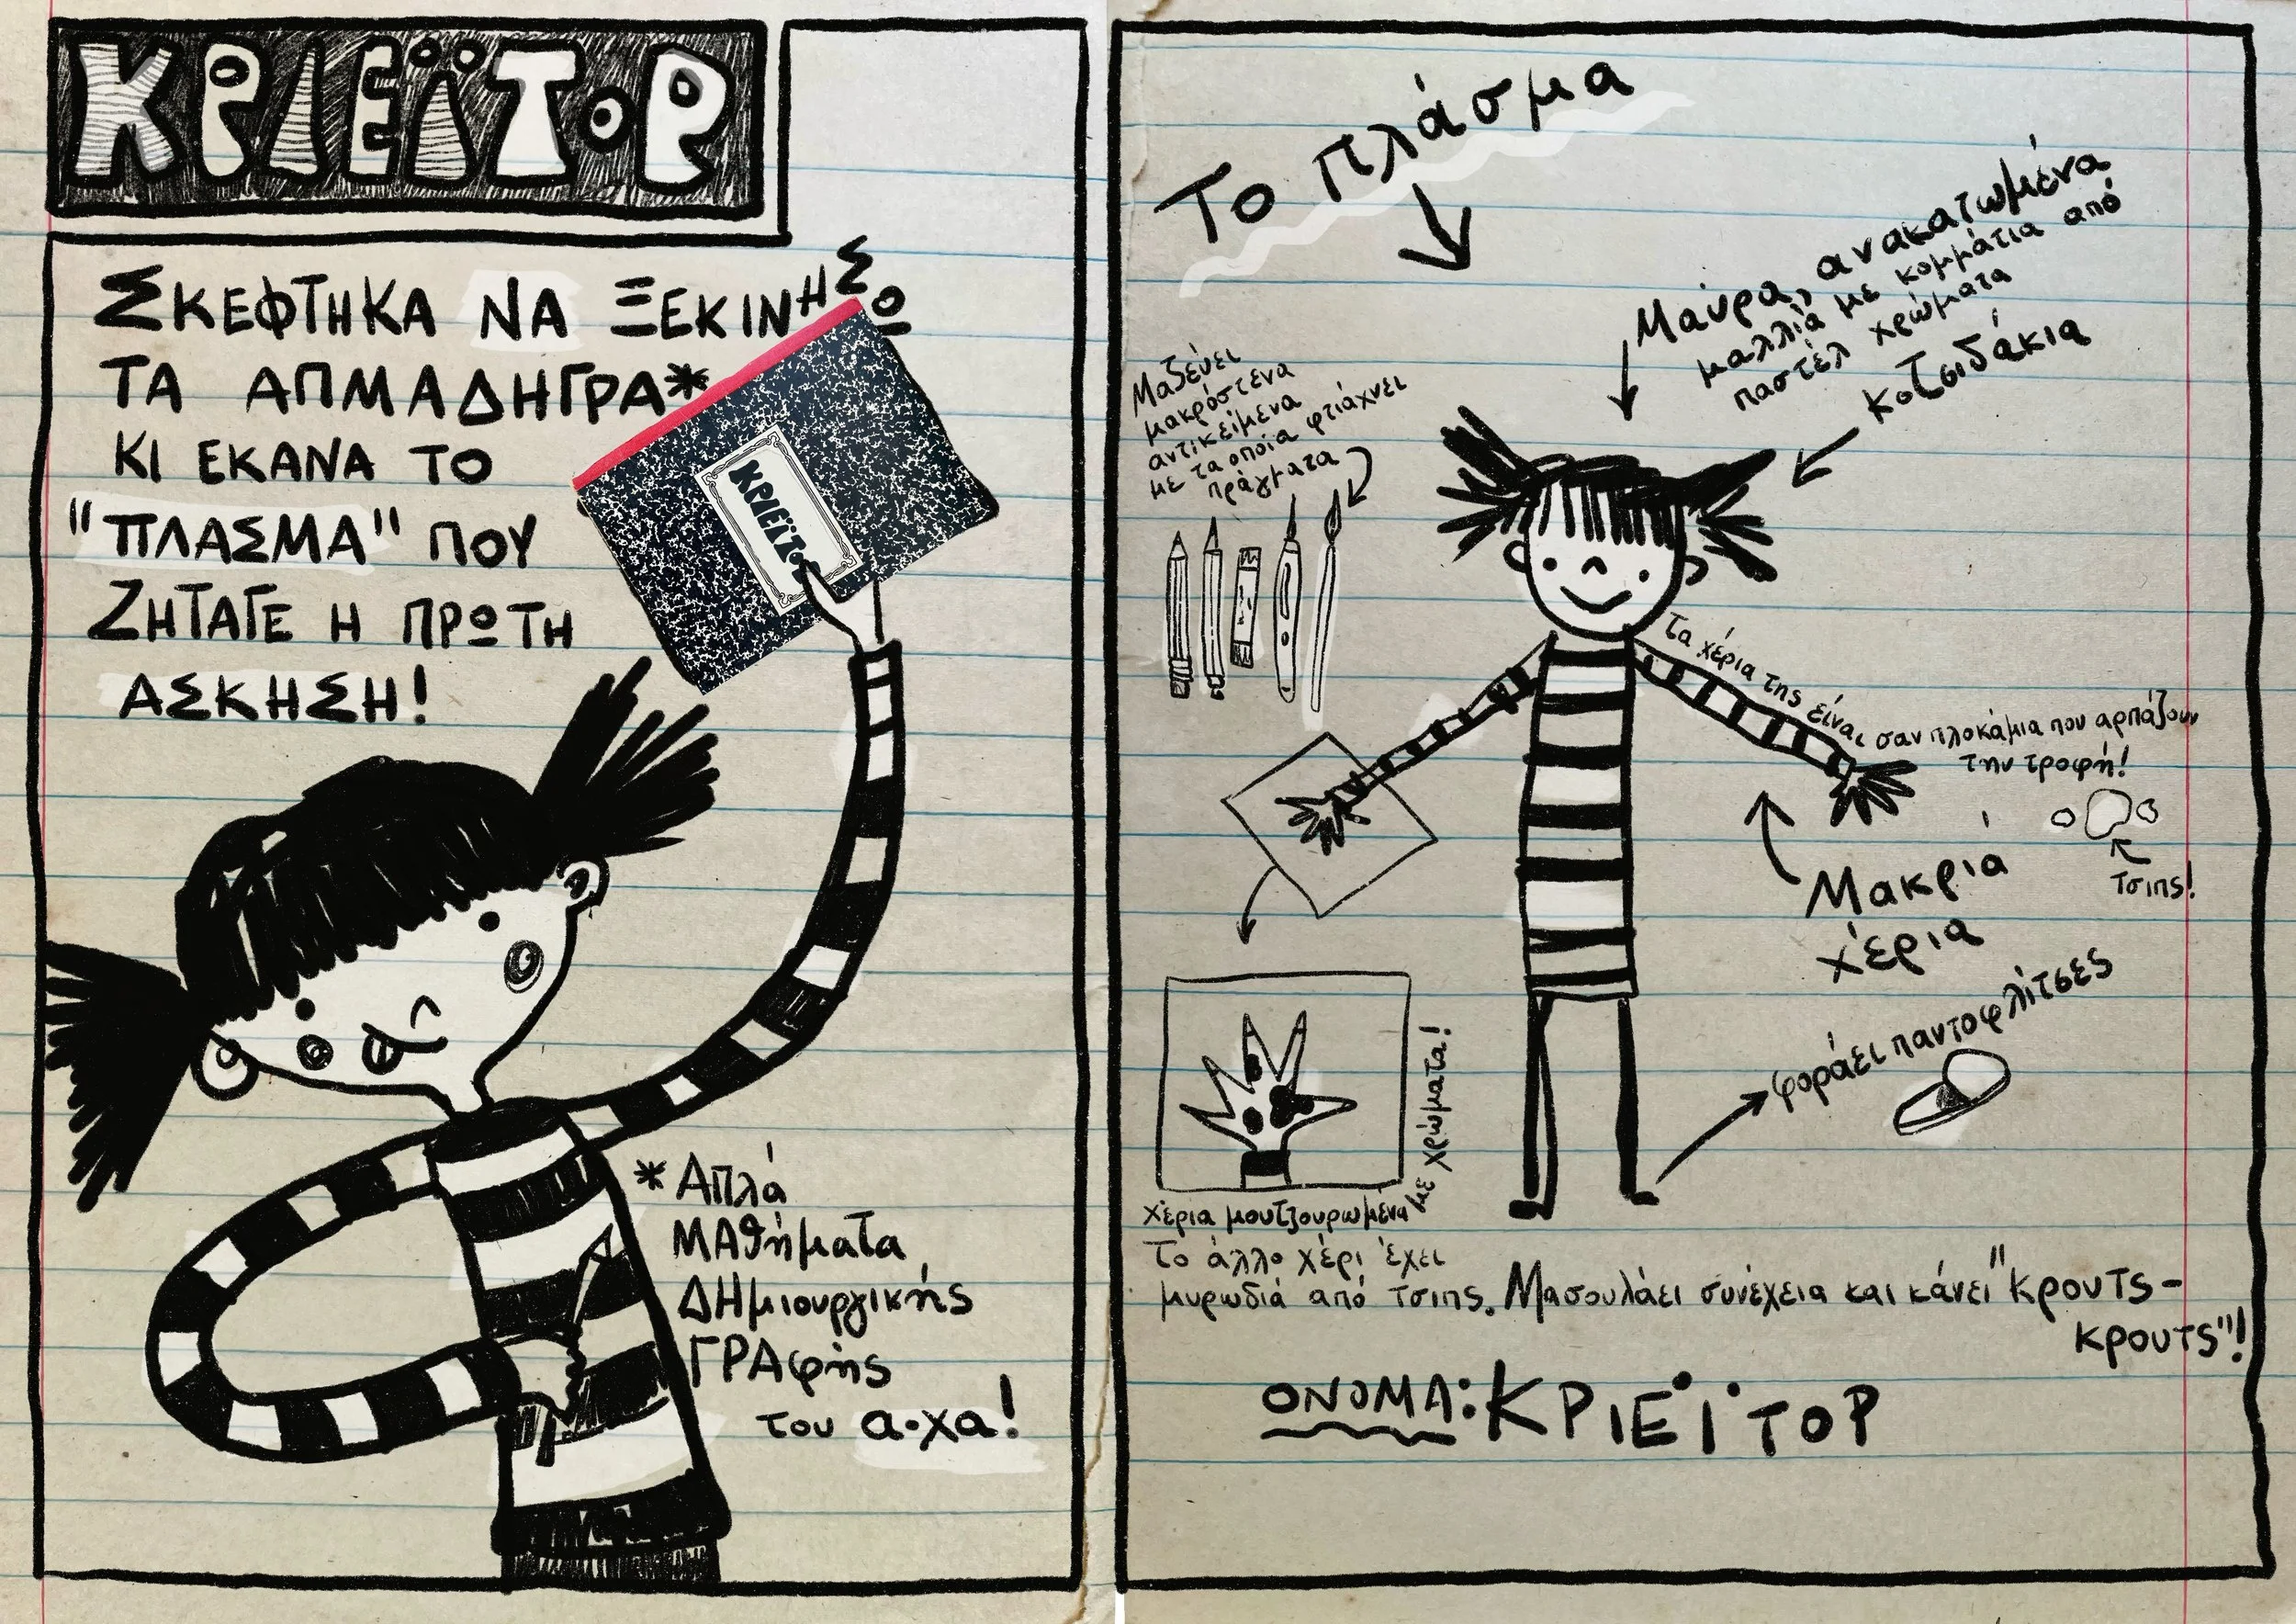 ΚΡΙΕΪΤΟΡ
ΣΚΕΦΤΗΚΑ ΝΑ ΞΕΚΙΝΗΣΩ
ΤΑ ΑΠΜΑΔΗΓΡΑ*
ΚΙ ΕΚΑΝΑ ΤΟ
"ΠΛΑΣΜΑ" ΠΟΥ
ΖΗΤΑΓΕ Η ΠΡΩΤΗ
ΑΣΚΗΣΗ!
ΚΡΙΕΪΤΟΡ
*Απλά
ΜΑθήματα
ΔΗμιουργικής
ΓΡΑφής
του α·χα!
Το πλάσμα
Μαύρα, ανακατωμένα
μαλλιά με κομμάτια από
παστέλ χρώματα
κοτσιδάκια
Μαζεύει
μακρόστενα
αντικείμενα
με τα οποία φτιάχνει
πράγματα
Τα χέρια της είναι σαν πλοκάμια που αρπάζουν
την τροφή!
τσιπς!
Μακριά
χέρια
φοράει παντοφλίτσες
χέρια μουτζουρωμένα
με χρώματα!
Το άλλο χέρι έχει
μυρωδιά από τσιπς. Μασουλάει συνέχεια και κάνει "κρουτς-
κρουτς"!
ΟΝΟΜΑ: ΚΡΙΕΪΤΟΡ